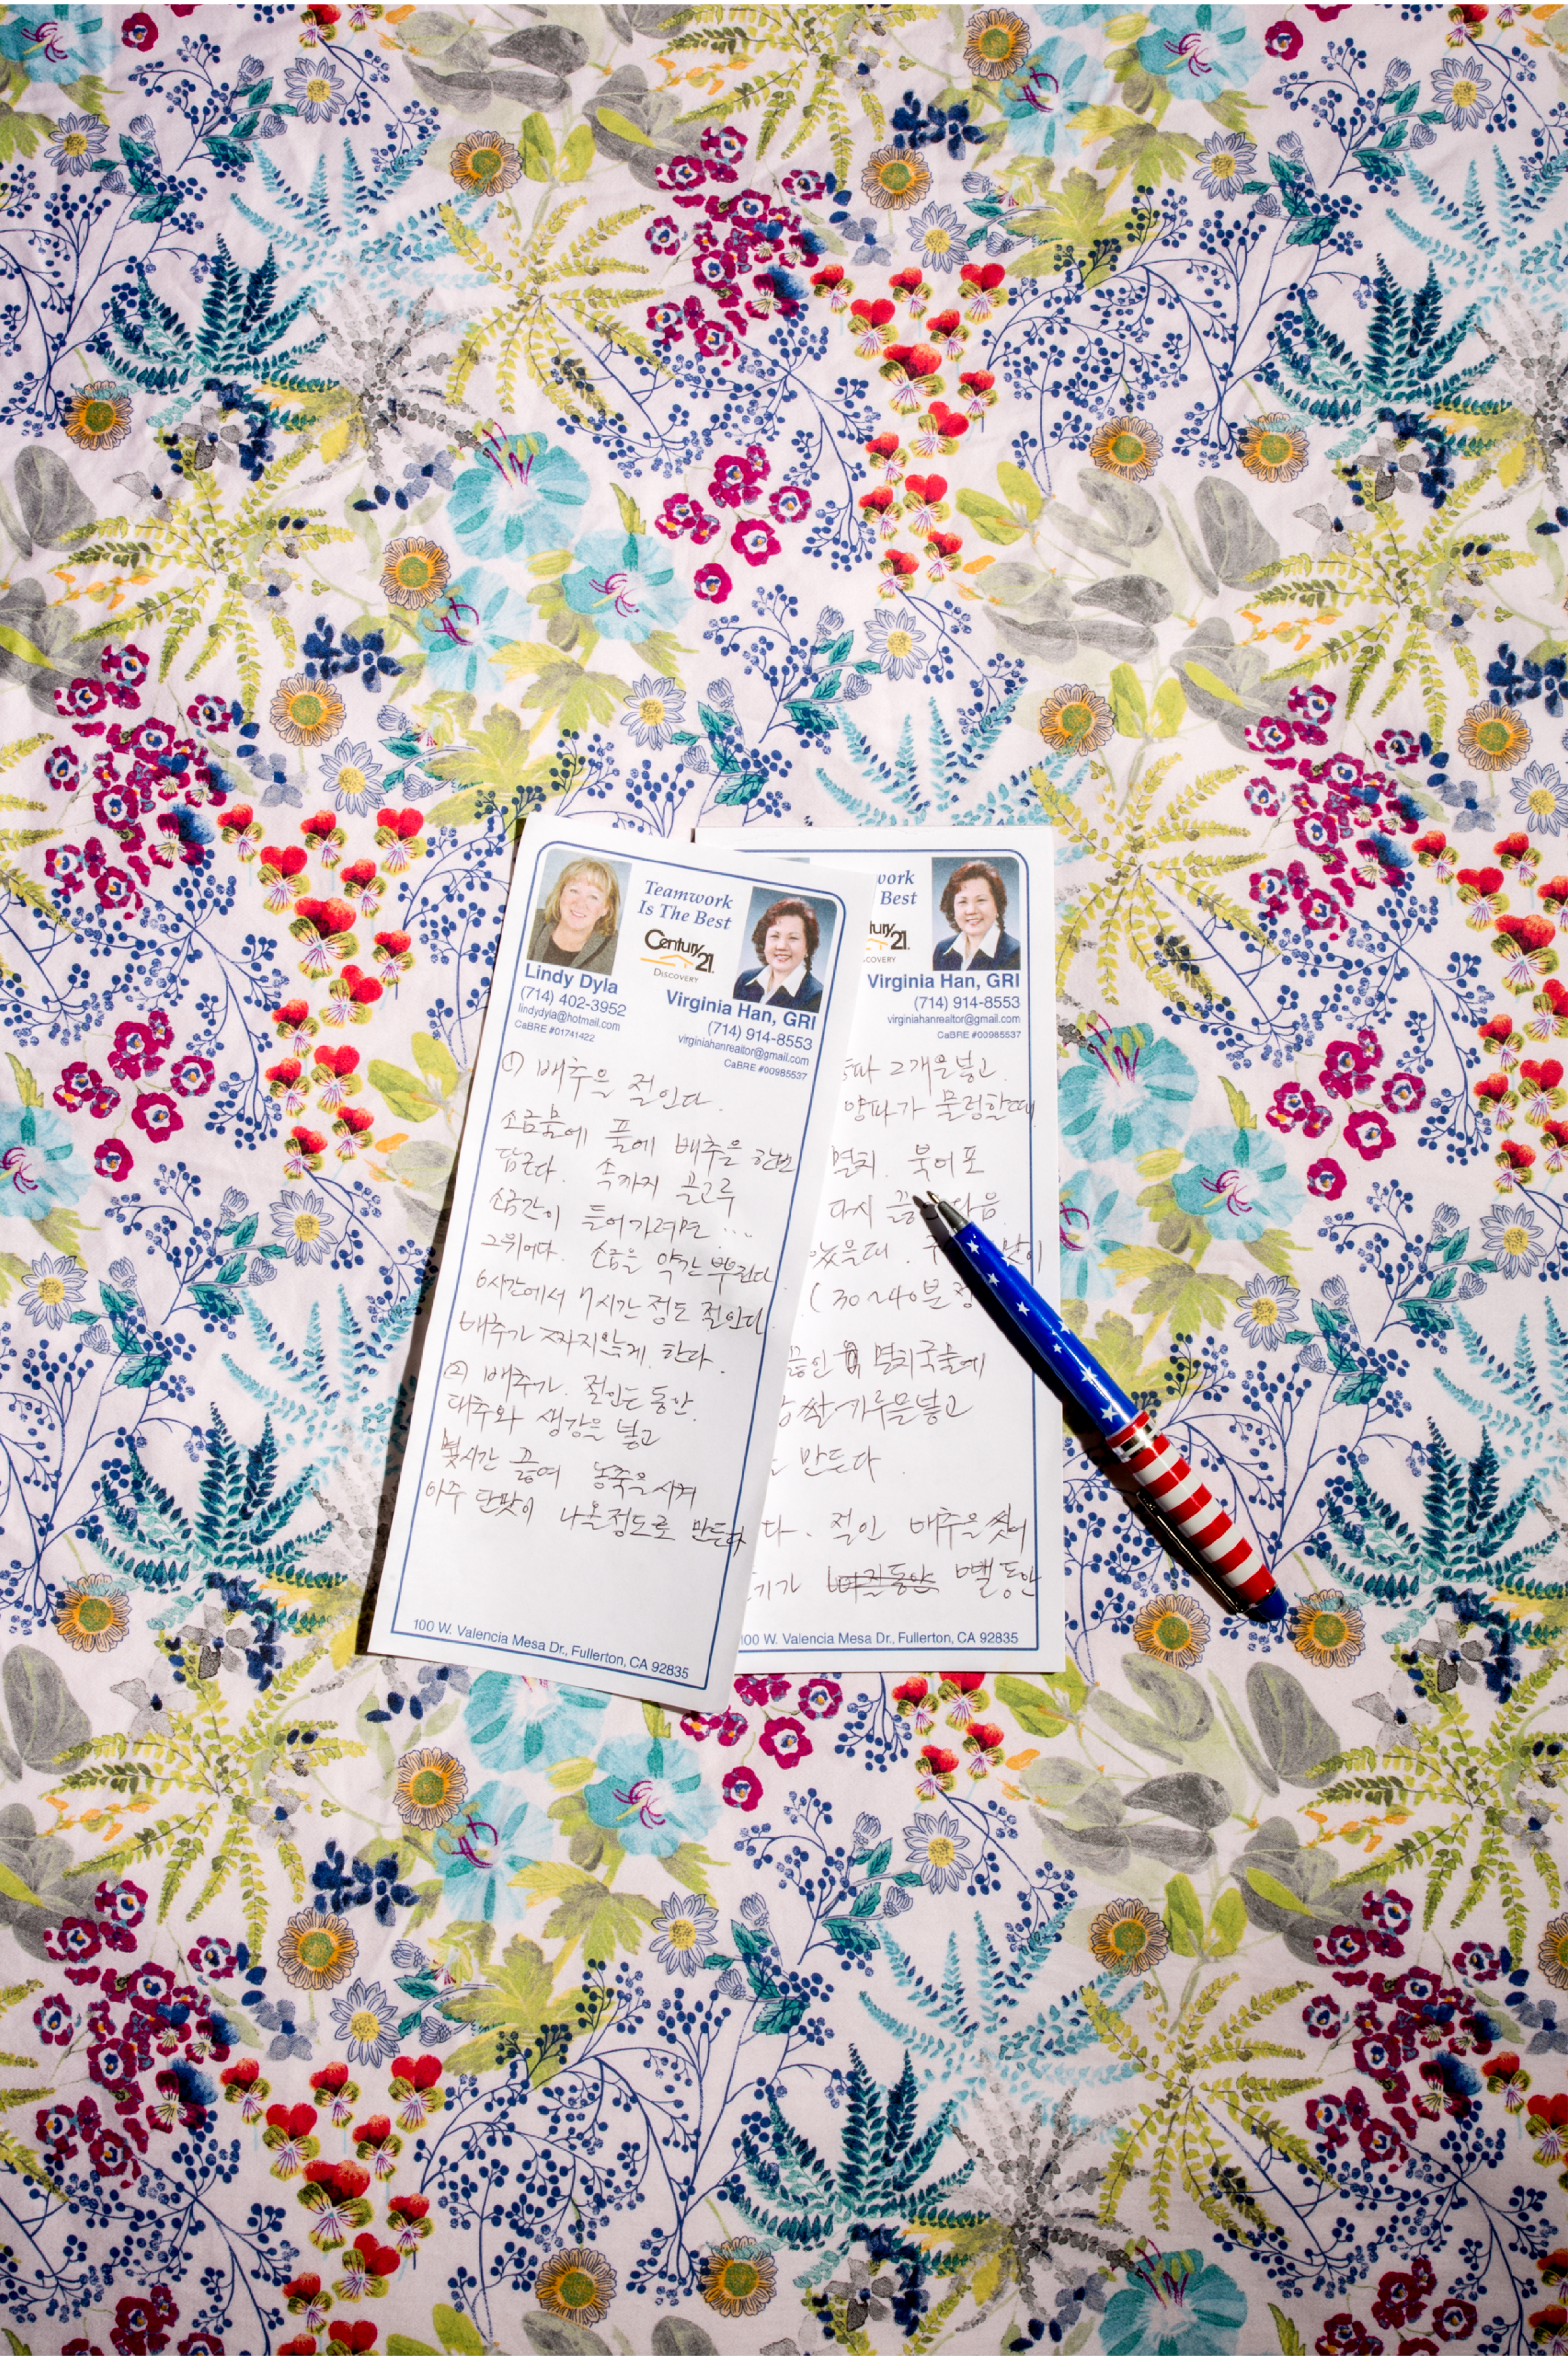 Teamwork
Is The Best
Century 21
DISCOVERY
Lindy Dyla
(714) 402-3952
lindydyla@hotmail.com
CaBRE #01741422
Virginia Han, GRI
(714) 914-8553
virginiahanrealtor@gmail.com
CaBRE #00985537
① 배추을 절인다.
소금물에 풀에 배추을 한번
담근다. 속까지 골고루
소금간이 들어가려면 ...
그위에다. 소금을 약간 뿌린다.
6시간에서 7시간 정도 절인다.
배추가 짜지않게. 한다.
② 배추가. 절인는 동안.
대추와 생강을 넣고
몇시간 끓여 농축을 시켜
아주 단맛이 나올정도로 만든다
100 W. Valencia Mesa Dr., Fullerton, CA 92835
work
Best
tury 21
COVERY
Virginia Han, GRI
(714) 914-8553
virginiahanrealtor@gmail.com
CaBRE #00985537
2개을넣고.
양파가 물렁할때
멸치. 북어포
다시 다음
있을때.
(30~40분
끓인 멸치국물에
쌀가루을넣고
만든다.
다. 절인 배추을 씻어
뺄동안
100 W. Valencia Mesa Dr., Fullerton, CA 92835